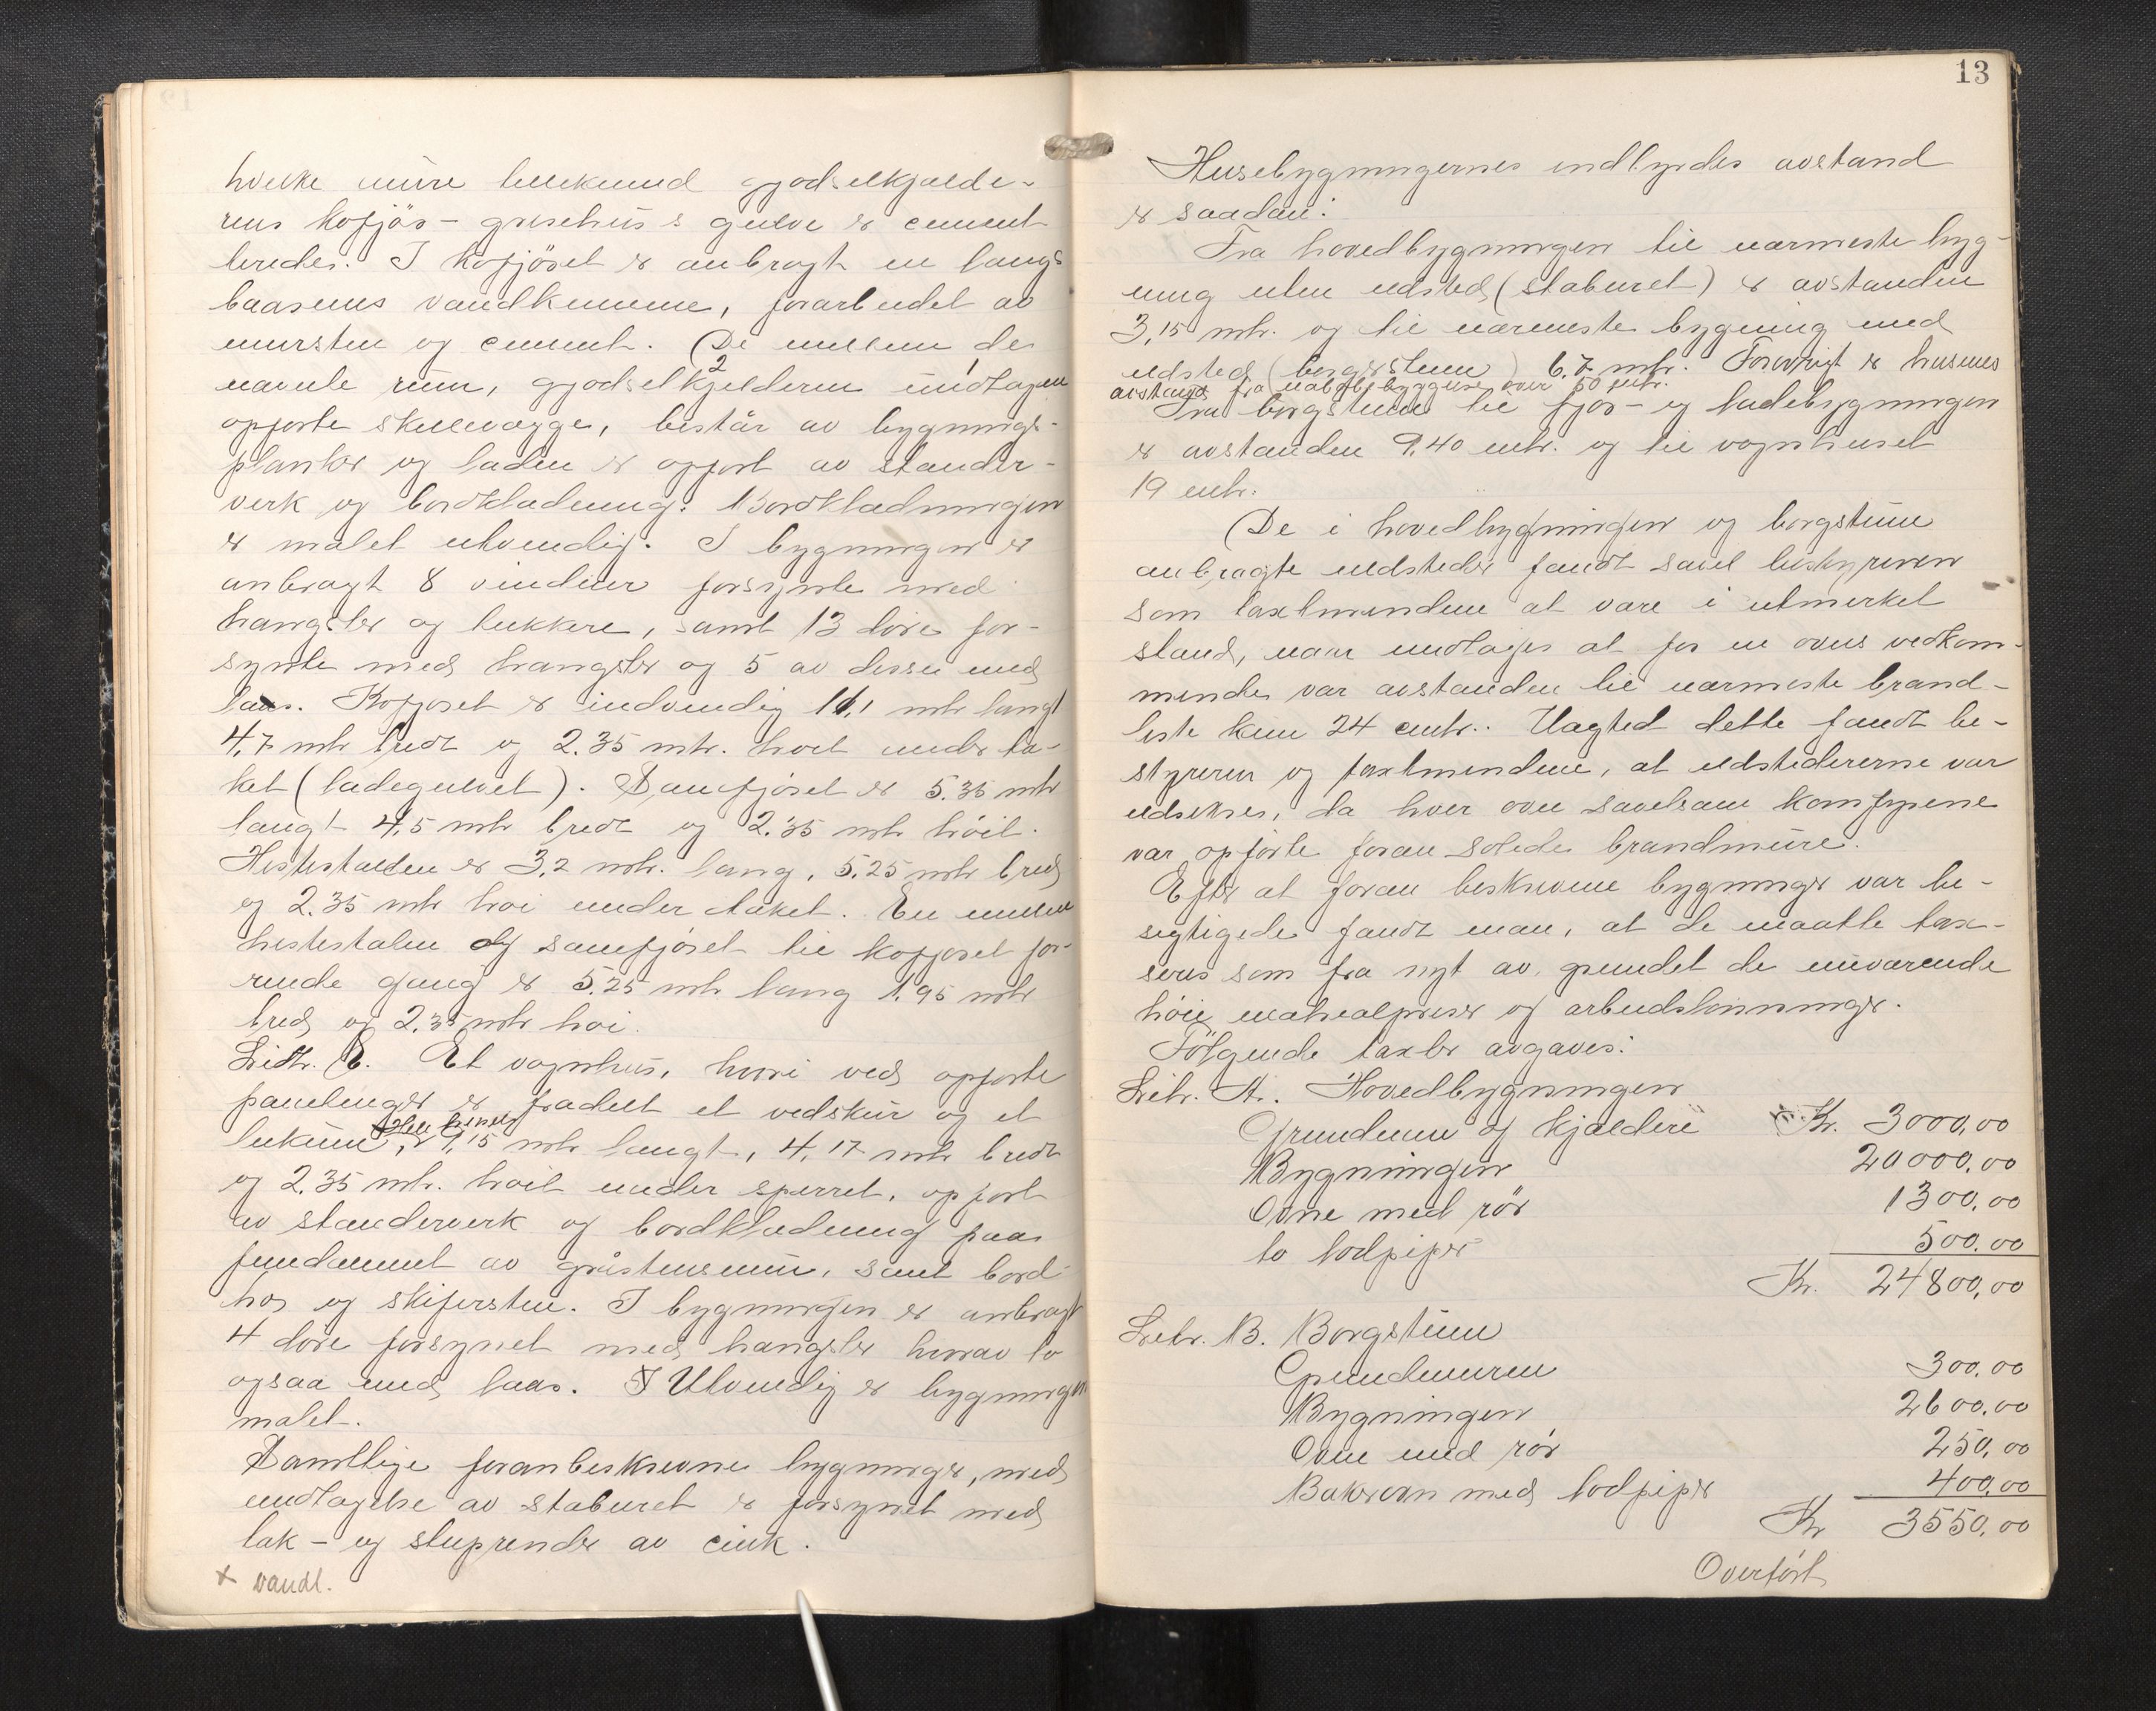 hvilke mure gjødselkjælde-
rens kofjös- grisehus's gulve er cement
beredes. I kofjöset er anbragt en langs
baasenes vandkumme, forarbeidet av
mursten og cement. De mellem de
nævnte rum, gjødselkjelderen undtagen
2
opførte skillevægge, består av bygnings-
planker og laden er opført av stander-
verk og bordklædning. Bordklædningen
er malet utvendig. I bygningen er
anbragt 8 vinduer forsynte med
hangsler og lukkere, samt 13 döre for-
synte med hangsler og 5 av disse med
laas. Kofjoset er indvendig 11,1 mtr langt
4,7 mtr bredt og 2.35 mtr. høit under ta-
ket (ladegulvet). Saufjöset er 5.35 mtr
langt 4,5 mtr bredt og 2.35 mtr höit.
Hestestalden er 3,2 mtr. lang, 5.25 mtr bred
og 2.35 mtr høi under taket. En mellem
hestestalen og saufjöset til kofjoset fø-
rende gang er 5.25 mtr lang 1.95 mtr
bred og 2.35 mtr høi.
Litr. E. Et vognhus, hvori ved opførte
panelinger er fradelt et vedskur og et
lukum, er 9,15 mtr langt, 4,17 mtr bredt
og 2.35 mtr. høit under sperret, opført
av standerverk og bordklædning paa
fundament av gråstensmur, samt bord-
hos og skifersten. I bygningen er anbragt
4 døre forsynet med hangsler hvorav to
ogsaa med laas. Utvendig er bygningen
malet.
Samtlige foranbeskrevne bygninger, med
undtagelse av staburet er forsynet med
tak- og sluprender av zink.
x vandl.
13
Husebygningernes indbyrdes avstand
er saadan:
Fra hovedbygningen til nærmeste byg-
ning uten ildsted (staburet) er avstanden
3,15 mtr. og til nærmeste bygning med
ildsted (borgstuen) 6.7 mtr. Forøvrigt er husenes
avstand fra nabobebyggelse over 50 mtr.
Fra borgstuen til fjøs- og ladebygningen
er avstanden 9,40 mtr. og til vognhuset
19 mtr.
De i hovedbygningen og borgstuen
anbragte ildsteder fandt såvel bestyreren
som taxtmendene at være i utmerket
stand, naar undtages at for en ovns vedkom-
mende var avstanden til nærmeste brand-
liste kun 24 cmtr.. Uagted dette fandt be-
styreren og taxtmendene, at ildstederne var
ildsikre, da hver ovn såvelsom komfyrene
var opförte foran solide brandmure.
Efter at foran beskrevne bygninger var be-
sigtigede fandt man, at de maatte taxe-
res som fra nyt av, grundet de nuværende
höie materialpriser og arbeidslønninger.
Fölgende taxter avgaves:
Litr. A. Hovedbygningen
Grundmur og kjældere Kr. 3000,00
Bygningen 20000,00
Ovne med rör 1300,00
to todpiper 500.00
Kr. 24800,00
Litr. B. Borgstuen
Grundmuren 300,00
Bygningen 2600,00
Ovn med rör 250,00
Bakerovn med todpiper 400,00
Kr 3550,00
Overfört